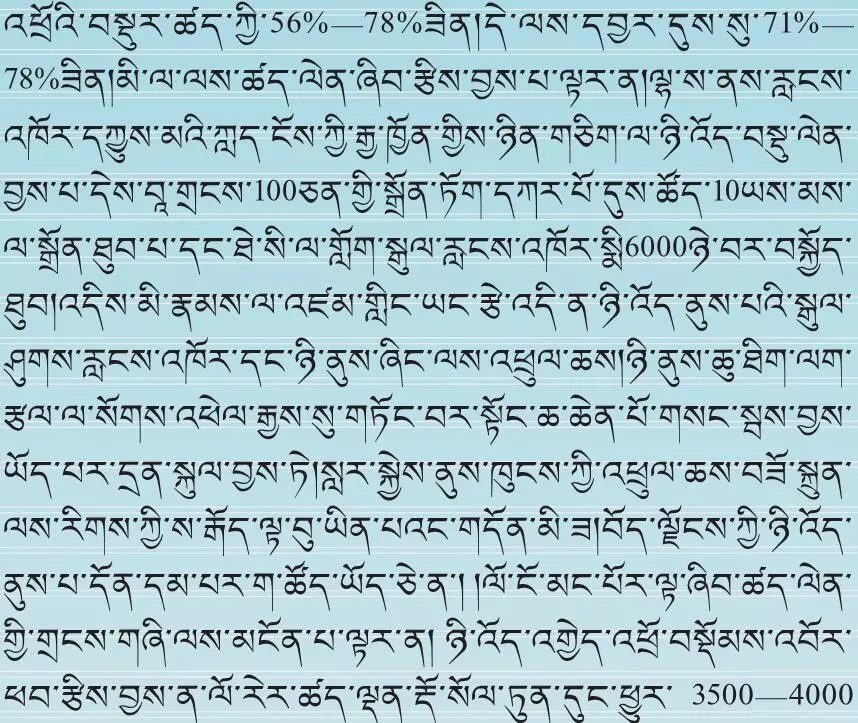 འཕྲོའི་བསྡུར་ཚད་ཀྱི་56%—78%ཟིན།དེ་ལས་དབྱར་དུས་སུ་71%—
78%ཟིན།མི་ལ་ལས་ཚད་ལེན་ཞིབ་རྩིས་བྱས་པ་ལྟར་ན།ལྷ་ས་ནས་རླངས་
འཁོར་དཀྱུས་མའི་ཀླད་ངོས་ཀྱི་རྒྱ་ཁྱོན་གྱིས་ཉིན་གཅིག་ལ་ཉི་འོད་བསྡུ་ལེན་
བྱས་པ་དེས་བཱ་གྲངས་100ཅན་གྱི་སྒྲོན་ཏོག་དཀར་པོ་དུས་ཚོད་10ཡས་མས་
ལ་སྒྲོན་ཐུབ་པ་དང་ཐེ་སི་ལ་གློག་སྒུལ་རླངས་འཁོར་སྨི6000ཉེ་བར་བསྐྱོད་
ཐུབ།འདིས་མི་རྣམས་ལ་འཛམ་གླིང་ཡང་རྩེ་འདི་ན་ཉི་འོད་ནུས་པའི་སྒུལ་
ཤུགས་རླངས་འཁོར་དང་ཉི་ནུས་ཞིང་ལས་འཕྲུལ་ཆས།ཉི་ནུས་ཆུ་ཐིག་ལག་
རྩལ་ལ་སོགས་འཕེལ་རྒྱས་སུ་གཏོང་བར་སྟོང་ཆ་ཆེན་པོ་གསང་སྦས་བྱས་
ཡོད་པར་དྲན་སྐུལ་བྱས་ཏེ།སླར་སྐྱེས་ནུས་ཁུངས་ཀྱི་འཕྲུལ་ཆས་བཟོ་སྐྲུན་
ལས་རིགས་ཀྱི་ས་རྒོད་ལྟ་བུ་ཡིན་པའང་གདོན་མི་ཟ།བོད་ལྗོངས་ཀྱི་ཉི་འོད་
ནུས་པ་དོན་དམ་པར་ག་ཚོད་ཡོད་ཅེ་ན། །ལོ་ངོ་མང་པོར་ལྟ་ཞིབ་ཚད་ལེན་
གྱི་གྲངས་གཞི་ལས་མངོན་པ་ལྟར་ན། ཉི་འོད་འགྱེད་འཕྲོ་བསྡོམས་འབོར་
ཕབ་རྩིས་བྱས་ན་ལོ་རེར་ཚད་ལྡན་རྡོ་སོལ་ཏུན་དུང་ཕྱུར་ 3500—4000